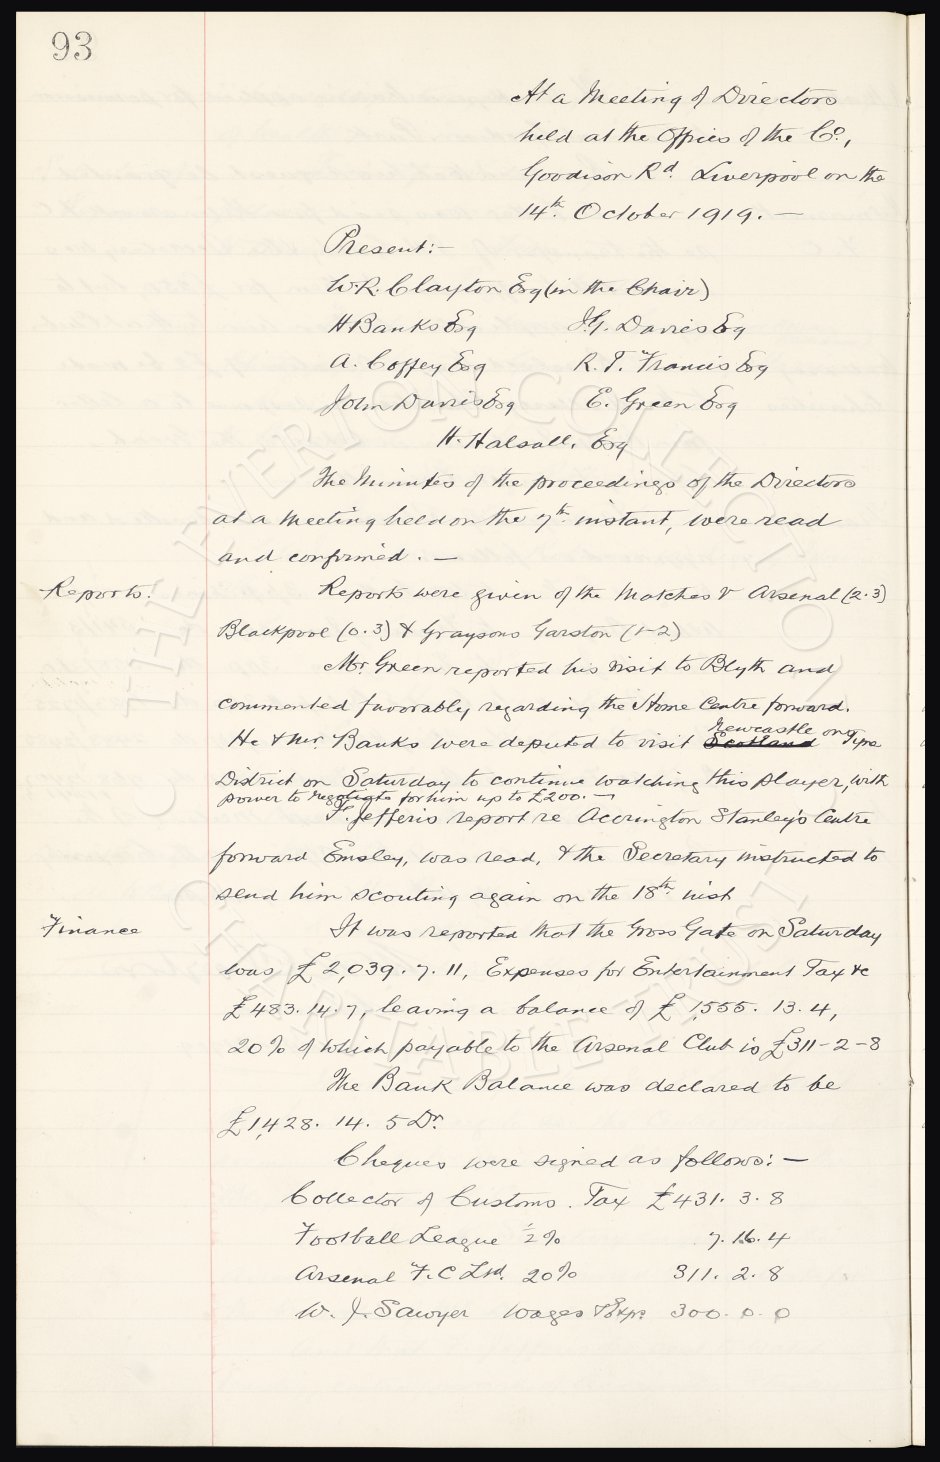 93
At a Meeting of Directors
held at the Offices of the Co.,
Goodison Rd. Liverpool on the
14th. October 1919. —
Present:—
W.R. Clayton Esq (in the Chair)
H Banks Esq J.G. Davies Esq
A. Coffey Esq R. T. Francis Esq
John Davies Esq E. Green Esq
H. Halsall. Esq
The Minutes of the proceedings of the Directors
at a meeting held on the 7th. instant, were read
and confirmed. —
Reports. Reports were given of the Matches V Arsenal (2.3)
Blackpool (0.3) & Graysons Garston (1-2)
Mr. Green reported his visit to Blyth and
commented favorably regarding the Home Centre forward.
Newcastle on
He & Mr. Banks were deputed to visit Scotland Tyne
District on Saturday to continue watching this player, with
power to negotiate for him up to £200. —
F. Jefferis report re Accrington Stanley's Centre
forward Emsley, was read, & the Secretary instructed to
send him scouting again on the 18th. inst
Finance It was reported that the Gross Gate on Saturday
was £2,039. 7. 11, Expenses for Entertainment Tax &c
£483. 14. 7, leaving a balance of £1,555. 13. 4,
20% of which payable to the Arsenal Club is £311-2-8
The Bank Balance was declared to be
£1,428. 14. 5 Dr.
Cheques were signed as follows: —
Collector of Customs. Tax £431. 3. 8
Football League ½% 7. 16. 4
Arsenal F.C Ltd. 20% 311. 2. 8
W. J. Sawyer Wages & Exps 300. 0. 0
THE EVERTON COLLECTION
CHARITABLE TRUST